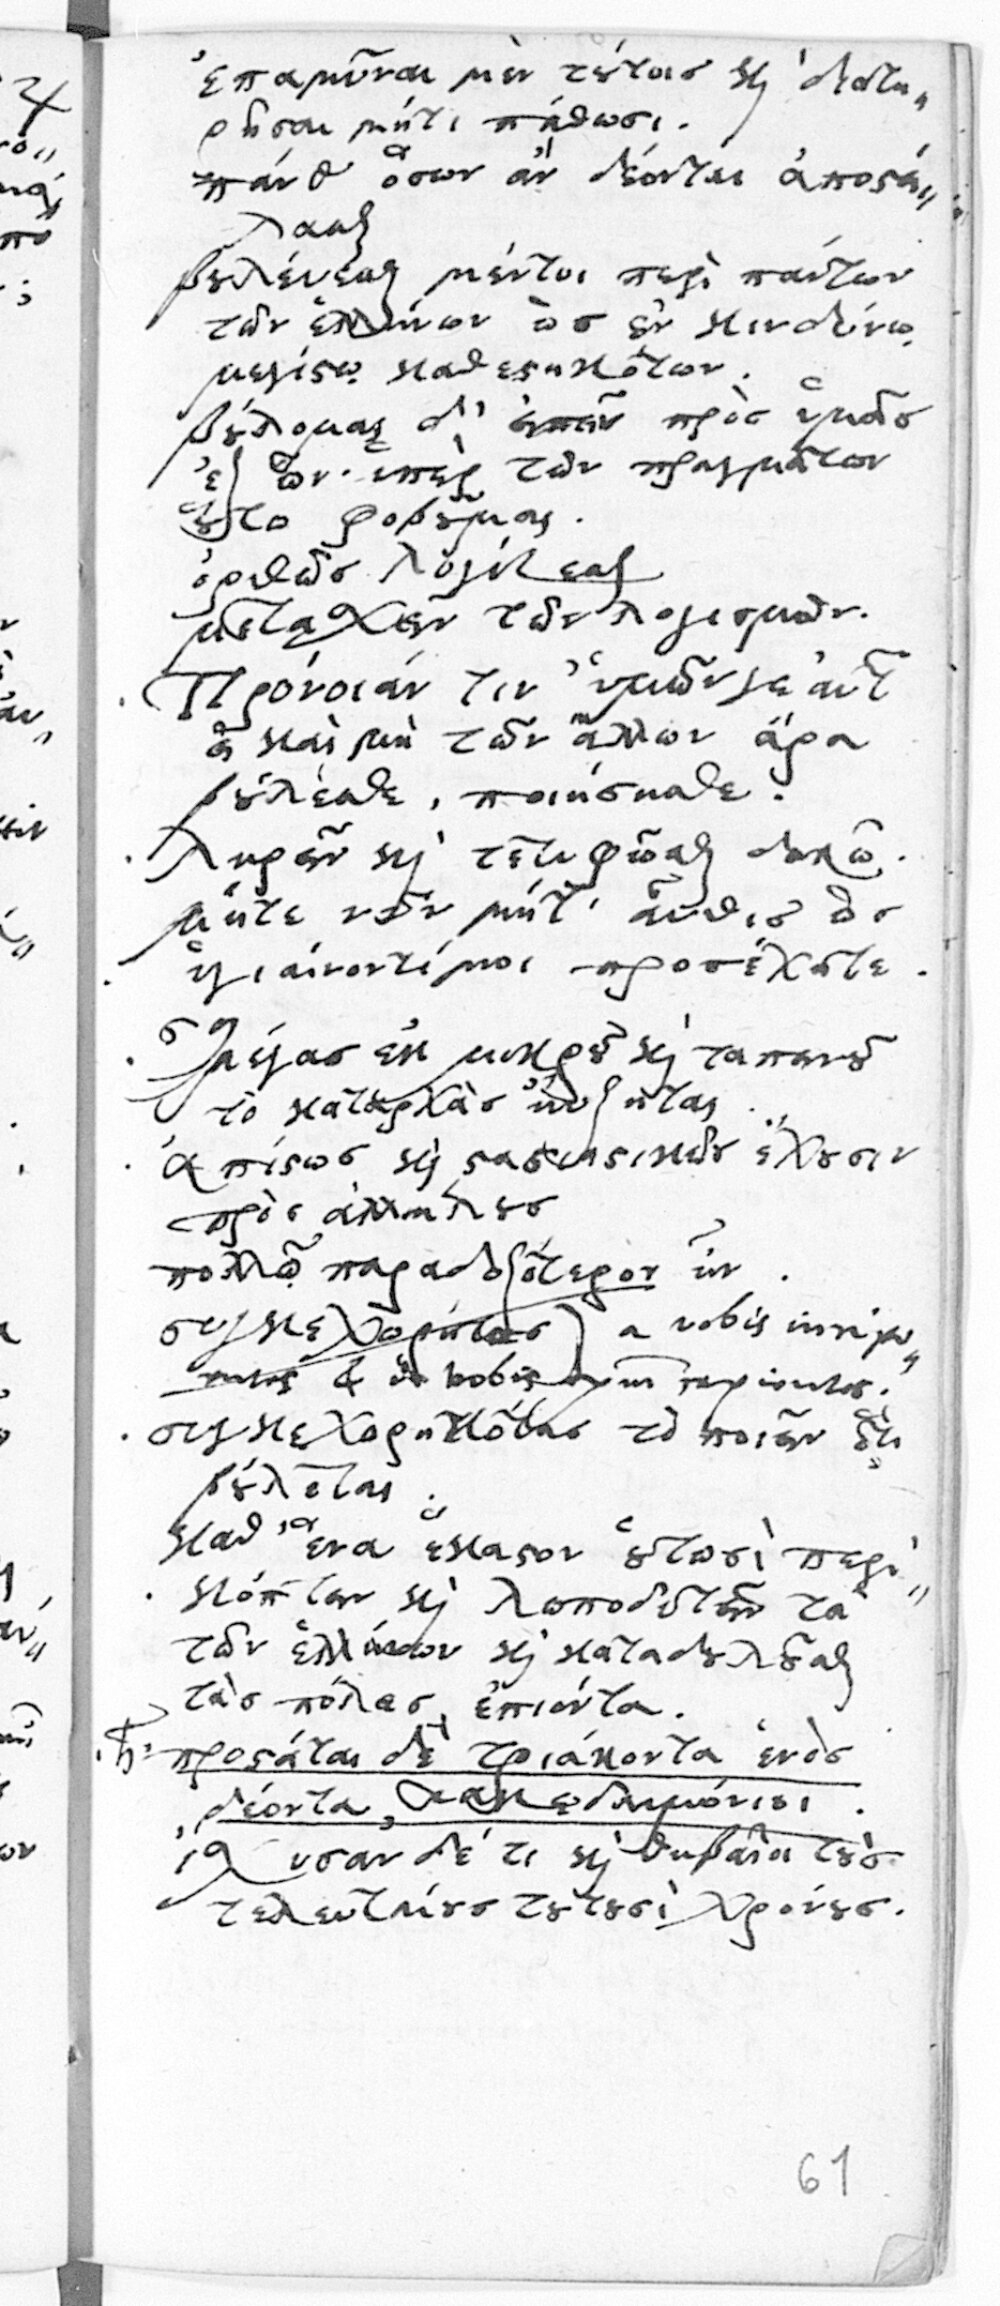 ἐπαμῦναι μὲν τούτοις καὶ διατη„
ρῆσαι μήτι πάθωσι.
πάνθ' ὅσων ἂν δέονται ἀποστεῖ„
λαι
βουλεύεσθαι μέντοι περὶ πάντων
τῶν ἑλλήνων ὡς ἐν κινδύνῳ
μεγίστῳ καθεστηκότων.
βούλομαι δ' εἰπεῖν πρὸς ὑμᾶς
ἐξ ὧν ὑπὲρ τῶν πραγμάτων
οὕτω φοβοῦμαι.
ὀρθῶς λογίζεσθαι
μετασχεῖν τῶν λογισμῶν.
Πρόνοιάν τιν' ὑμῶν γε αὐτ
εἰ καὶ μὴ τῶν ἄλλων ἄρα
βούλεσθε, ποιήσησθε.
ληρεῖν καὶ τετυφῶσθαι δοκῶ.
μήτε νῦν μήτ' αὖθις ὡς
ὑγιαίνοντί μοι προσέχετε.
μέγας ἐκ μικροῦ καὶ ταπεινοῦ
τὸ κατ' ἀρχὰς ηὔξηται.
ἀπίστως καὶ στασιαστικῶς ἔχουσιν
πρὸς ἀλλήλους
πολλῷ παραδοξότερον ἦν.
συγκεχωρήκατε a vobis
& vobis
συγκεχωρηκότας τὸ ποιεῖν ὅτι
βούλεται.
καθ' ἕνα ἕκαστον οὑτωσὶ περι„
κόπτειν καὶ λωποδυτεῖν τὰ
τῶν ἑλλήνων καὶ καταδουλοῦσθαι
τὰς πόλεις ἐπιόντα.
προστάται δὲ τριάκοντα ἑνὸς
δέοντα, Λακεδαιμόνιοι.
ἴσχυσαν δέ τι καὶ θηβαῖοι τοὺς
τελευταίους τουτουσὶ χρόνους.
61